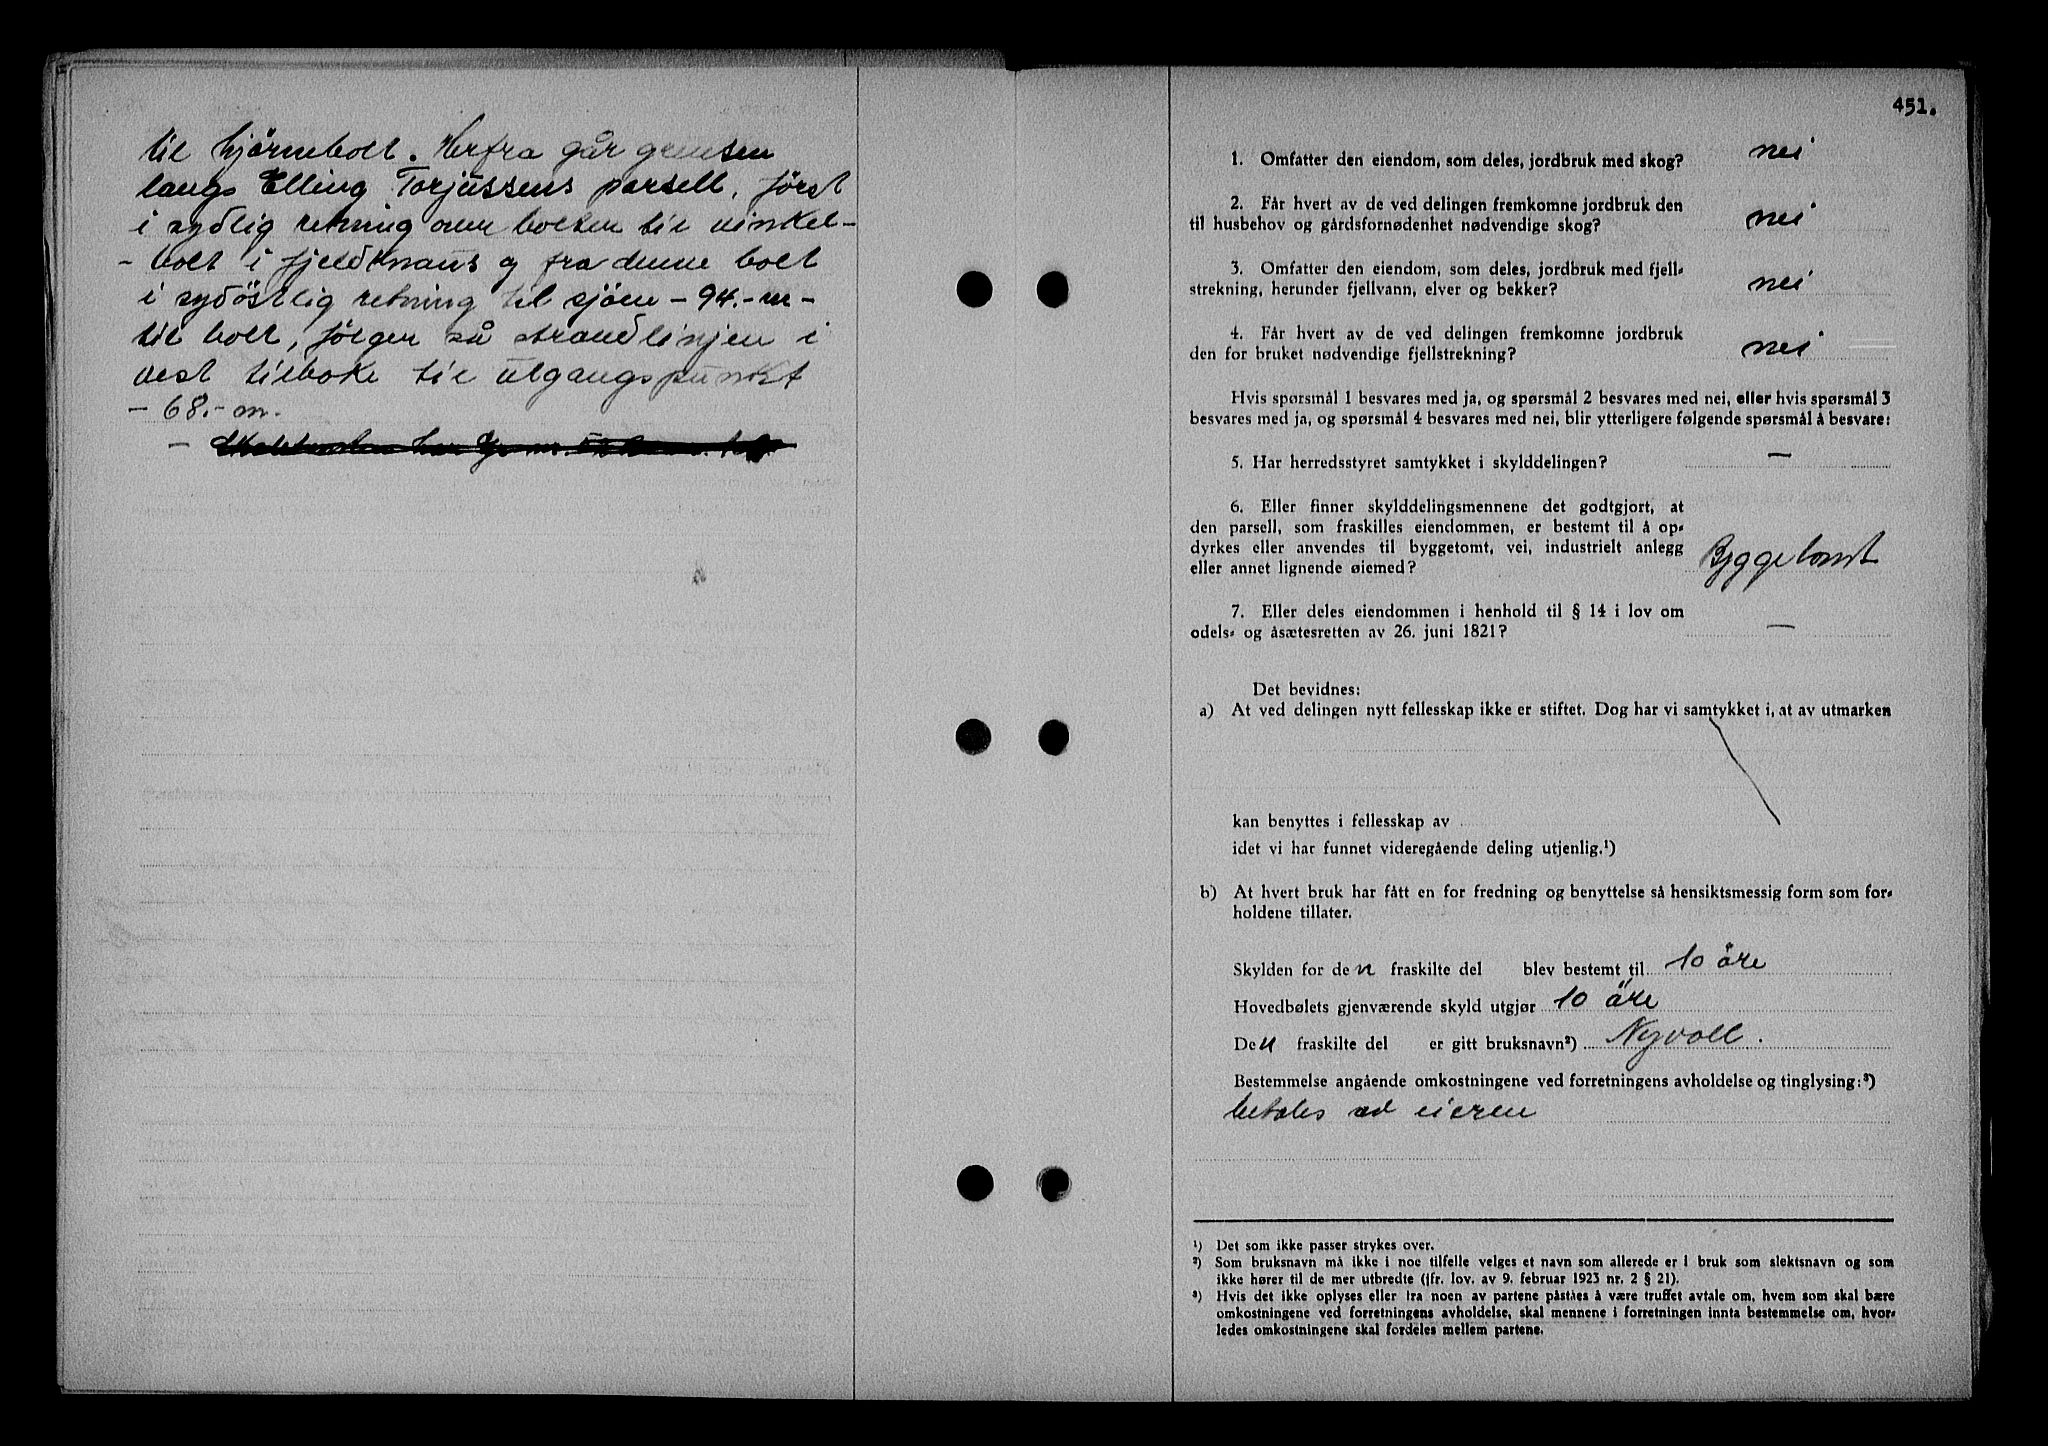 til hjørnebolt. Herfra går grensen
langs Elling Torjussens parsell, først
i sydlig retning over bolten til vinkel-
- bolt i fjeldknaus og fra denne bolt
i sydöstlig retning til sjöen - 94.- m -
til bolt, følger så strandlinjen i
vest tilbake til utgangspunkt
- 68.- m.
-
451.
1. Omfatter den eiendom, som deles, jordbruk med skog? nei
2. Får hvert av de ved delingen fremkomne jordbruk den
til husbehov og gårdsfornødenhet nødvendige skog? nei
3. Omfatter den eiendom, som deles, jordbruk med fjell-
strekning, herunder fjellvann, elver og bekker? nei
4. Får hvert av de ved delingen fremkomne jordbruk
den for bruket nødvendige fjellstrekning? nei
Hvis spørsmål 1 besvares med ja, og spørsmål 2 besvares med nei, eller hvis spørsmål 3
besvares med ja, og spørsmål 4 besvares med nei, blir ytterligere følgende spørsmål å besvare:
5. Har herredsstyret samtykket i skylddelingen? —
6. Eller finner skylddelingsmennene det godtgjort, at
den parsell, som fraskilles eiendommen, er bestemt til å op-
dyrkes eller anvendes til byggetomt, vei, industrielt anlegg
eller annet lignende øiemed? Byggetomt
7. Eller deles eiendommen i henhold til § 14 i lov om
odels- og åsætesretten av 26. juni 1821? —
Det bevidnes:
a) At ved delingen nytt fellesskap ikke er stiftet. Dog har vi samtykket i, at av utmarken
kan benyttes i fellesskap av
idet vi har funnet videregående deling utjenlig.¹)
b) At hvert bruk har fått en for fredning og benyttelse så hensiktsmessig form som for-
holdene tillater.
Skylden for den fraskilte del blev bestemt til 10 öre
Hovedbølets gjenværende skyld utgjør 10 öre
Den fraskilte del er gitt bruksnavn²) Nyvoll.
Bestemmelse angående omkostningene ved forretningens avholdelse og tinglysing:³)
betales av eieren
¹) Det som ikke passer strykes over.
²) Som bruksnavn må ikke i noe tilfelle velges et navn som allerede er i bruk som slektsnavn og som
ikke hører til de mer utbredte (jfr. lov. av 9. februar 1923 nr. 2 § 21).
³) Hvis det ikke oplyses eller fra noen av partene påståes å være truffet avtale om, hvem som skal bære
omkostningene ved forretningens avholdelse, skal mennene i forretningen innta bestemmelse om, hvor-
ledes omkostningene skal fordeles mellem partene.